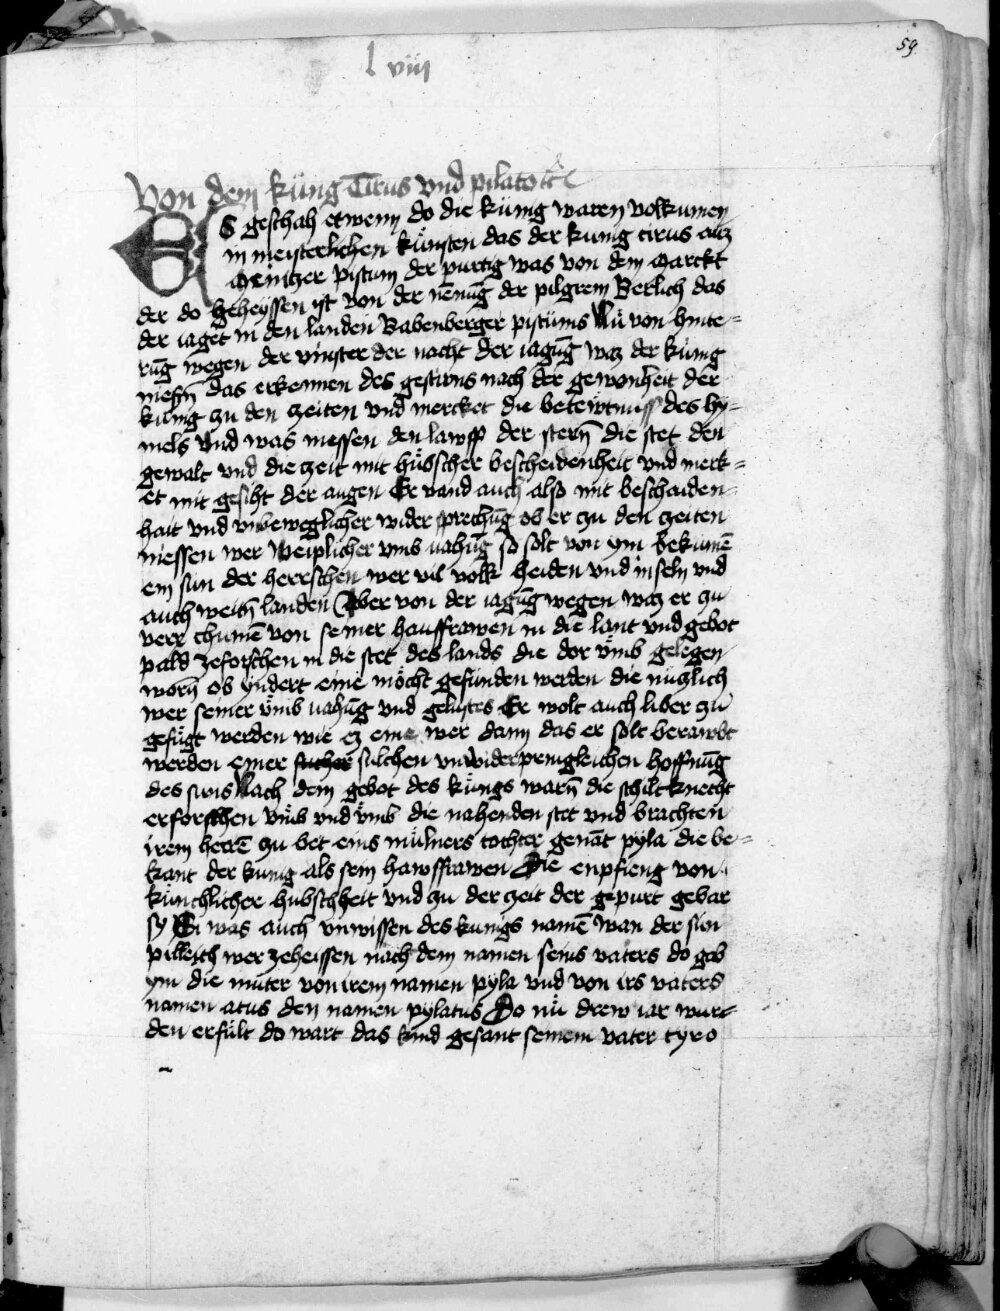 59
l viij
Von dem küng Tirus vnd pilato etc
Es geschah etwenn do die künig waren volkumen
in meisterlichen künsten das der kunig cirus auz
Menitzer pistum der purtig was von dem Marckt
der do geheyssen ist von der nēnūg der pilgrem Berlich das
der iaget in den landen Babenberger pistums Nu von hinte=
rūg wegen der vinster der nacht der iagūg waz der künig
messn̄ das erkennen des gestirns nach der gewonheit der
kunig zu den zeiten vnd mercket die beteẅtnuss des hy=
mels Vnd was messen den lawff der stern̄ die stet den
gewalt vnd die zeit mit hübscher bescheidenheit vnd merk=
et mit gesiht der augen Er vand auch also mit beschaiden=
hait vnd vnbeweglicher wider sprechūg ob er zu den zeiten
messen wer Weiplicher vmb vahūg so solt von ym bekumē
ein sun der herrschen wer vil volk heiden vnd inseln vnd
auch weitn̄ landen Aber von der iagūg wegen waz er zu
verr chumē von seiner hauffrawen in die lant vnd gebot
pald zeforschen in die stet des lands die dor vmb gelegen
worn̄ ob yndert eine möcht gefunden werden die nuczlich
wer seiner vmb vahūg vnd gelustes Er wolt auch liber zu
gefügt werden wie ez eine wer dann das er solt berawbt
werden einer sulchen vnwiderpringleichen hoffnūg
des suns Nach dem gebot des küngs warn̄ die schiltknecht
erforschen vmb vnd vmb die nahenden stet vnd brachten
irem herrē zu bet eins mülners tochter genāt pyla die be=
kant der kunig als sein hawsffrawen Die enpfieng von
künchlicher hubschheit vnd zu der zeit der gepurt gebar
sy Er was auch vnwissen des kunigs namē Wan der sun
pilleich wer zeheissen nach dem namen seins vaters do gab
ym die muter von irem namen pyla vnd von irs vaters
namen atus den namen pylatus Do nu drew iar wur=
den erfült do wart das kind gesant seinem vater tyro